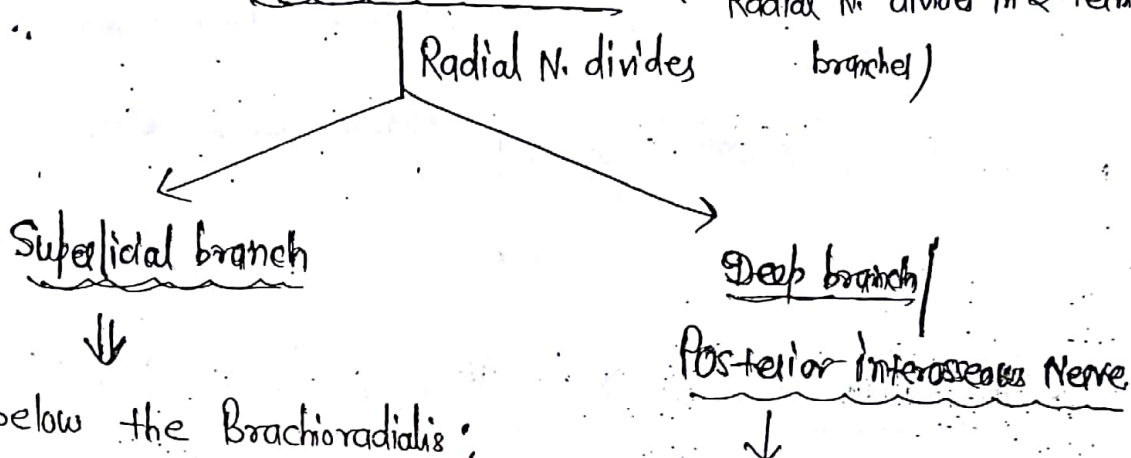 Radial N. divided in 2
Radial N. divides branches)
Superficial branch
Deep branch/
Posterior interosseous Nerve
below the Brachioradialis;